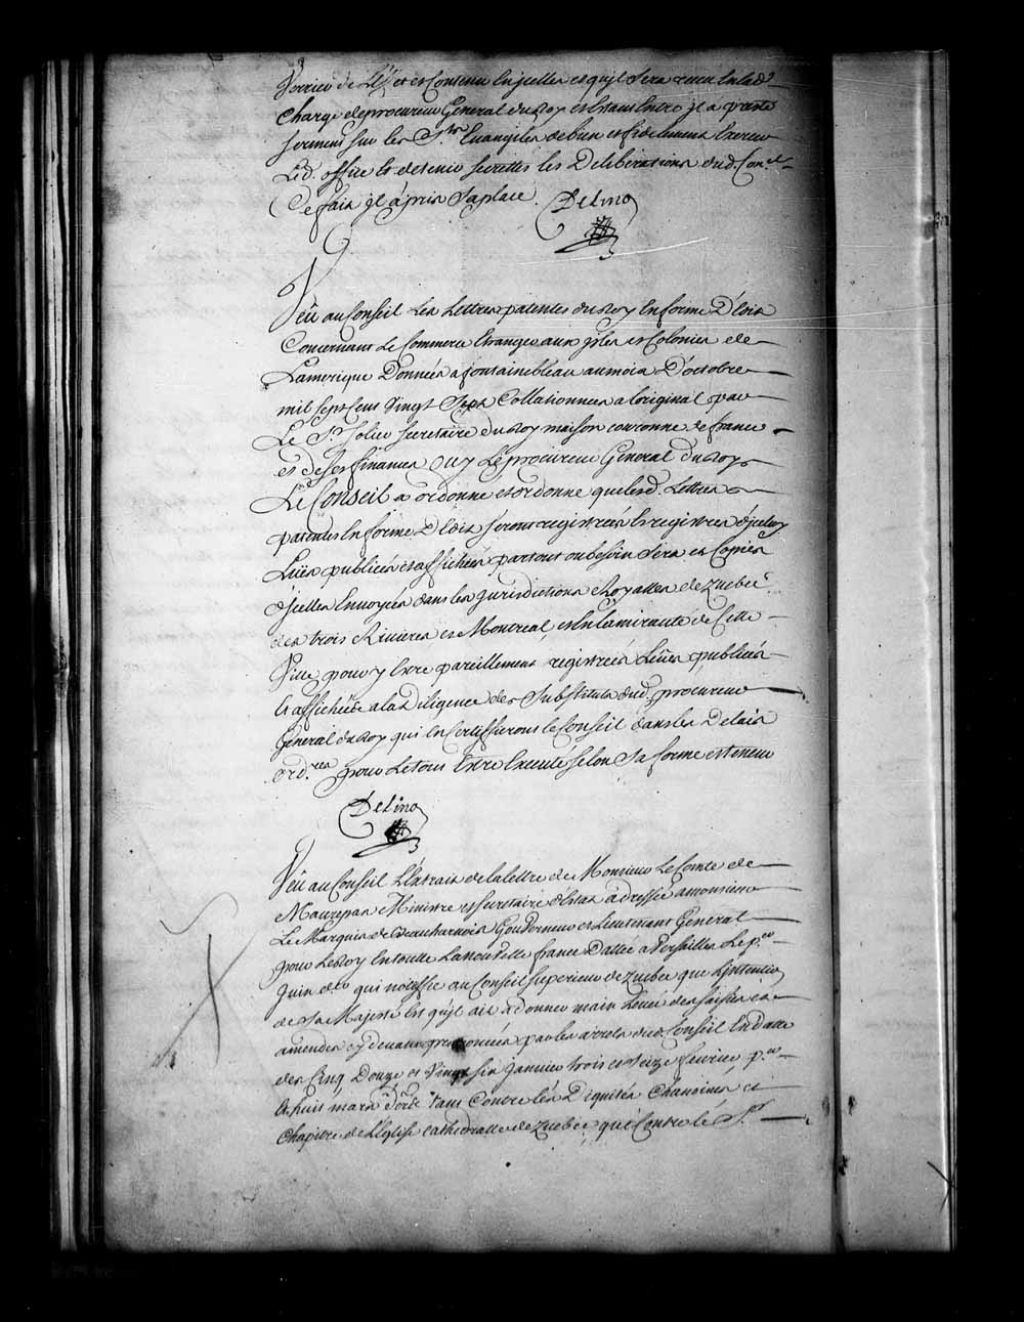 Verrier de L'Est et es Contenu En jcelles et quyl Sera receu En lad.
Charge de procureur General du Roy et Estant Entré jl a presté
serment sur les Sts Euangiles de bien et fidelement Exercer
Led. office Et de tenir secrettes les Deliberations dud. Conel
Ce fait jl a pris Sa place.
Delino
Veü au Conseil Les Lettres patentes du Roy En forme D'Edit
Concernant Le Commerce Etranger aux jsles et Colonies de
Lamerique Données a fontainebleau au mois D'octobre
mil sept Cent Vingt Sept Collationnées a loriginal par
Le Sr secretaire du Roy maison couronne de france
et de ses finances Ouy Le procureur General du Roy
Le Conseil a ordonné et ordonne que lesd. Lettres
patentes En forme D'Edit seront registrées Es registres d'jceluy
Luës publiées et affichées partout ou besoin Sera et Copies
d'jcelles Envoyées dans les Jurisdictions Royalles de Quebec
des trois Riuieres et Montreal et En Lamirauté de Cette
Ville pour y Estre pareillement registrées Luës publiées
Et affichées a la Diligence des Substituts dud. procureur
General du Roy qui En Certiffieront le Conseil dans les Delais
ordres pour Le tout Estre Executé selon Sa forme et teneur
Delino
Veü au Conseil L'Extrait de la lettre de Monsieur Le Comte de
Maurepas Ministre et secretaire d'Estat adressée a monsieur
Le Marquis de Beauharnois Gouverneur et Lieutenant General
pour Le Roy En toutte La nouvelle france Dattée a Versailles Le per
Juin der qui notiffie au Conseil Superieur de Quebec que L'jntention
de Sa Majesté Est qu'jl ait a donner main Leueé des saisies et
amendes cy deuant prononcées par les arrets dud. Conseil En datte
des Cinq Douze et Vingt six Januier trois et seize feurier, per
Et huit mars dr tant Contre les Dignités Chanoines et
Chapitre de L'Eglise Cathedralle de Quebec, que Contre le Sr